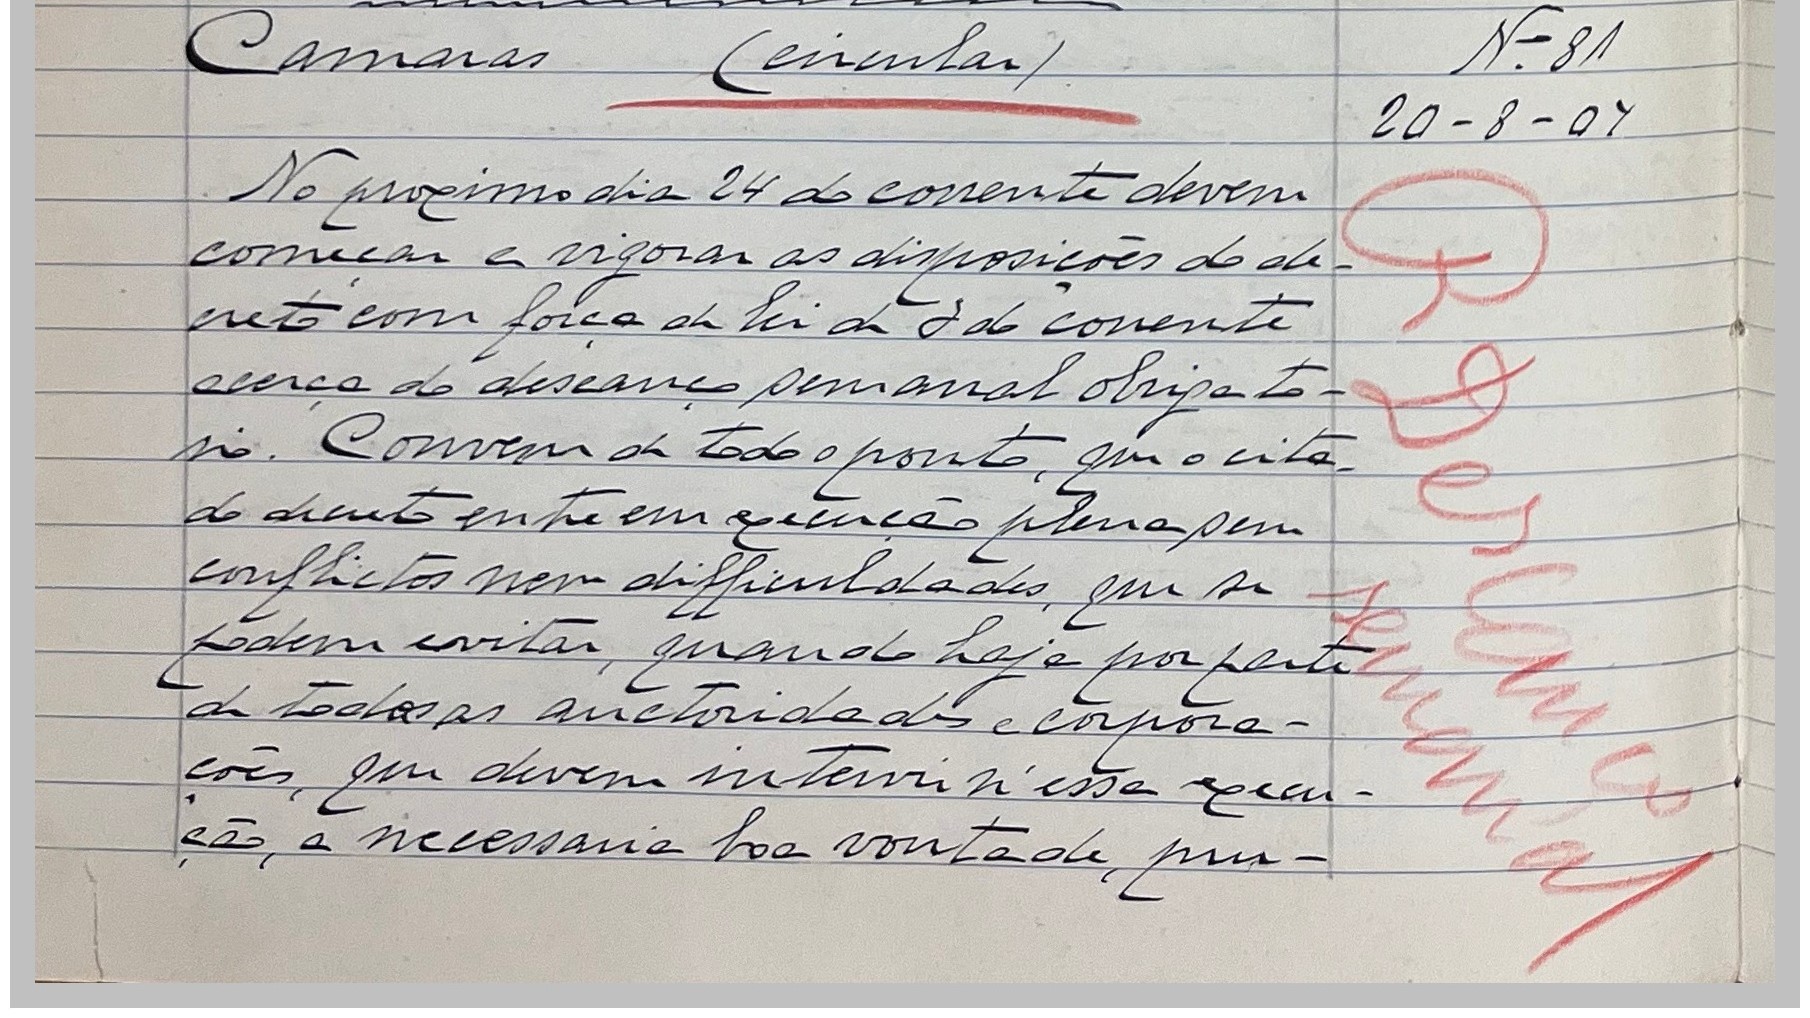 Camaras (circular)
Nº 81
20-8-07
No proximo dia 24 do corrente devem
começar a vigorar as disposições do de-
creto com força de lei de 3 do corrente
acerca do descanço semanal obrigato-
rio. Convem de todo o ponto, que o cita-
do decreto entre em execução plena sem
conflictos nem difficuldades, que se
podem evitar, quando haja por parte
de todas as auctoridades e corpora-
ções, que devem intervir n'essa execu-
ção, a necessaria boa vontade, pru-
Descanço
semanal